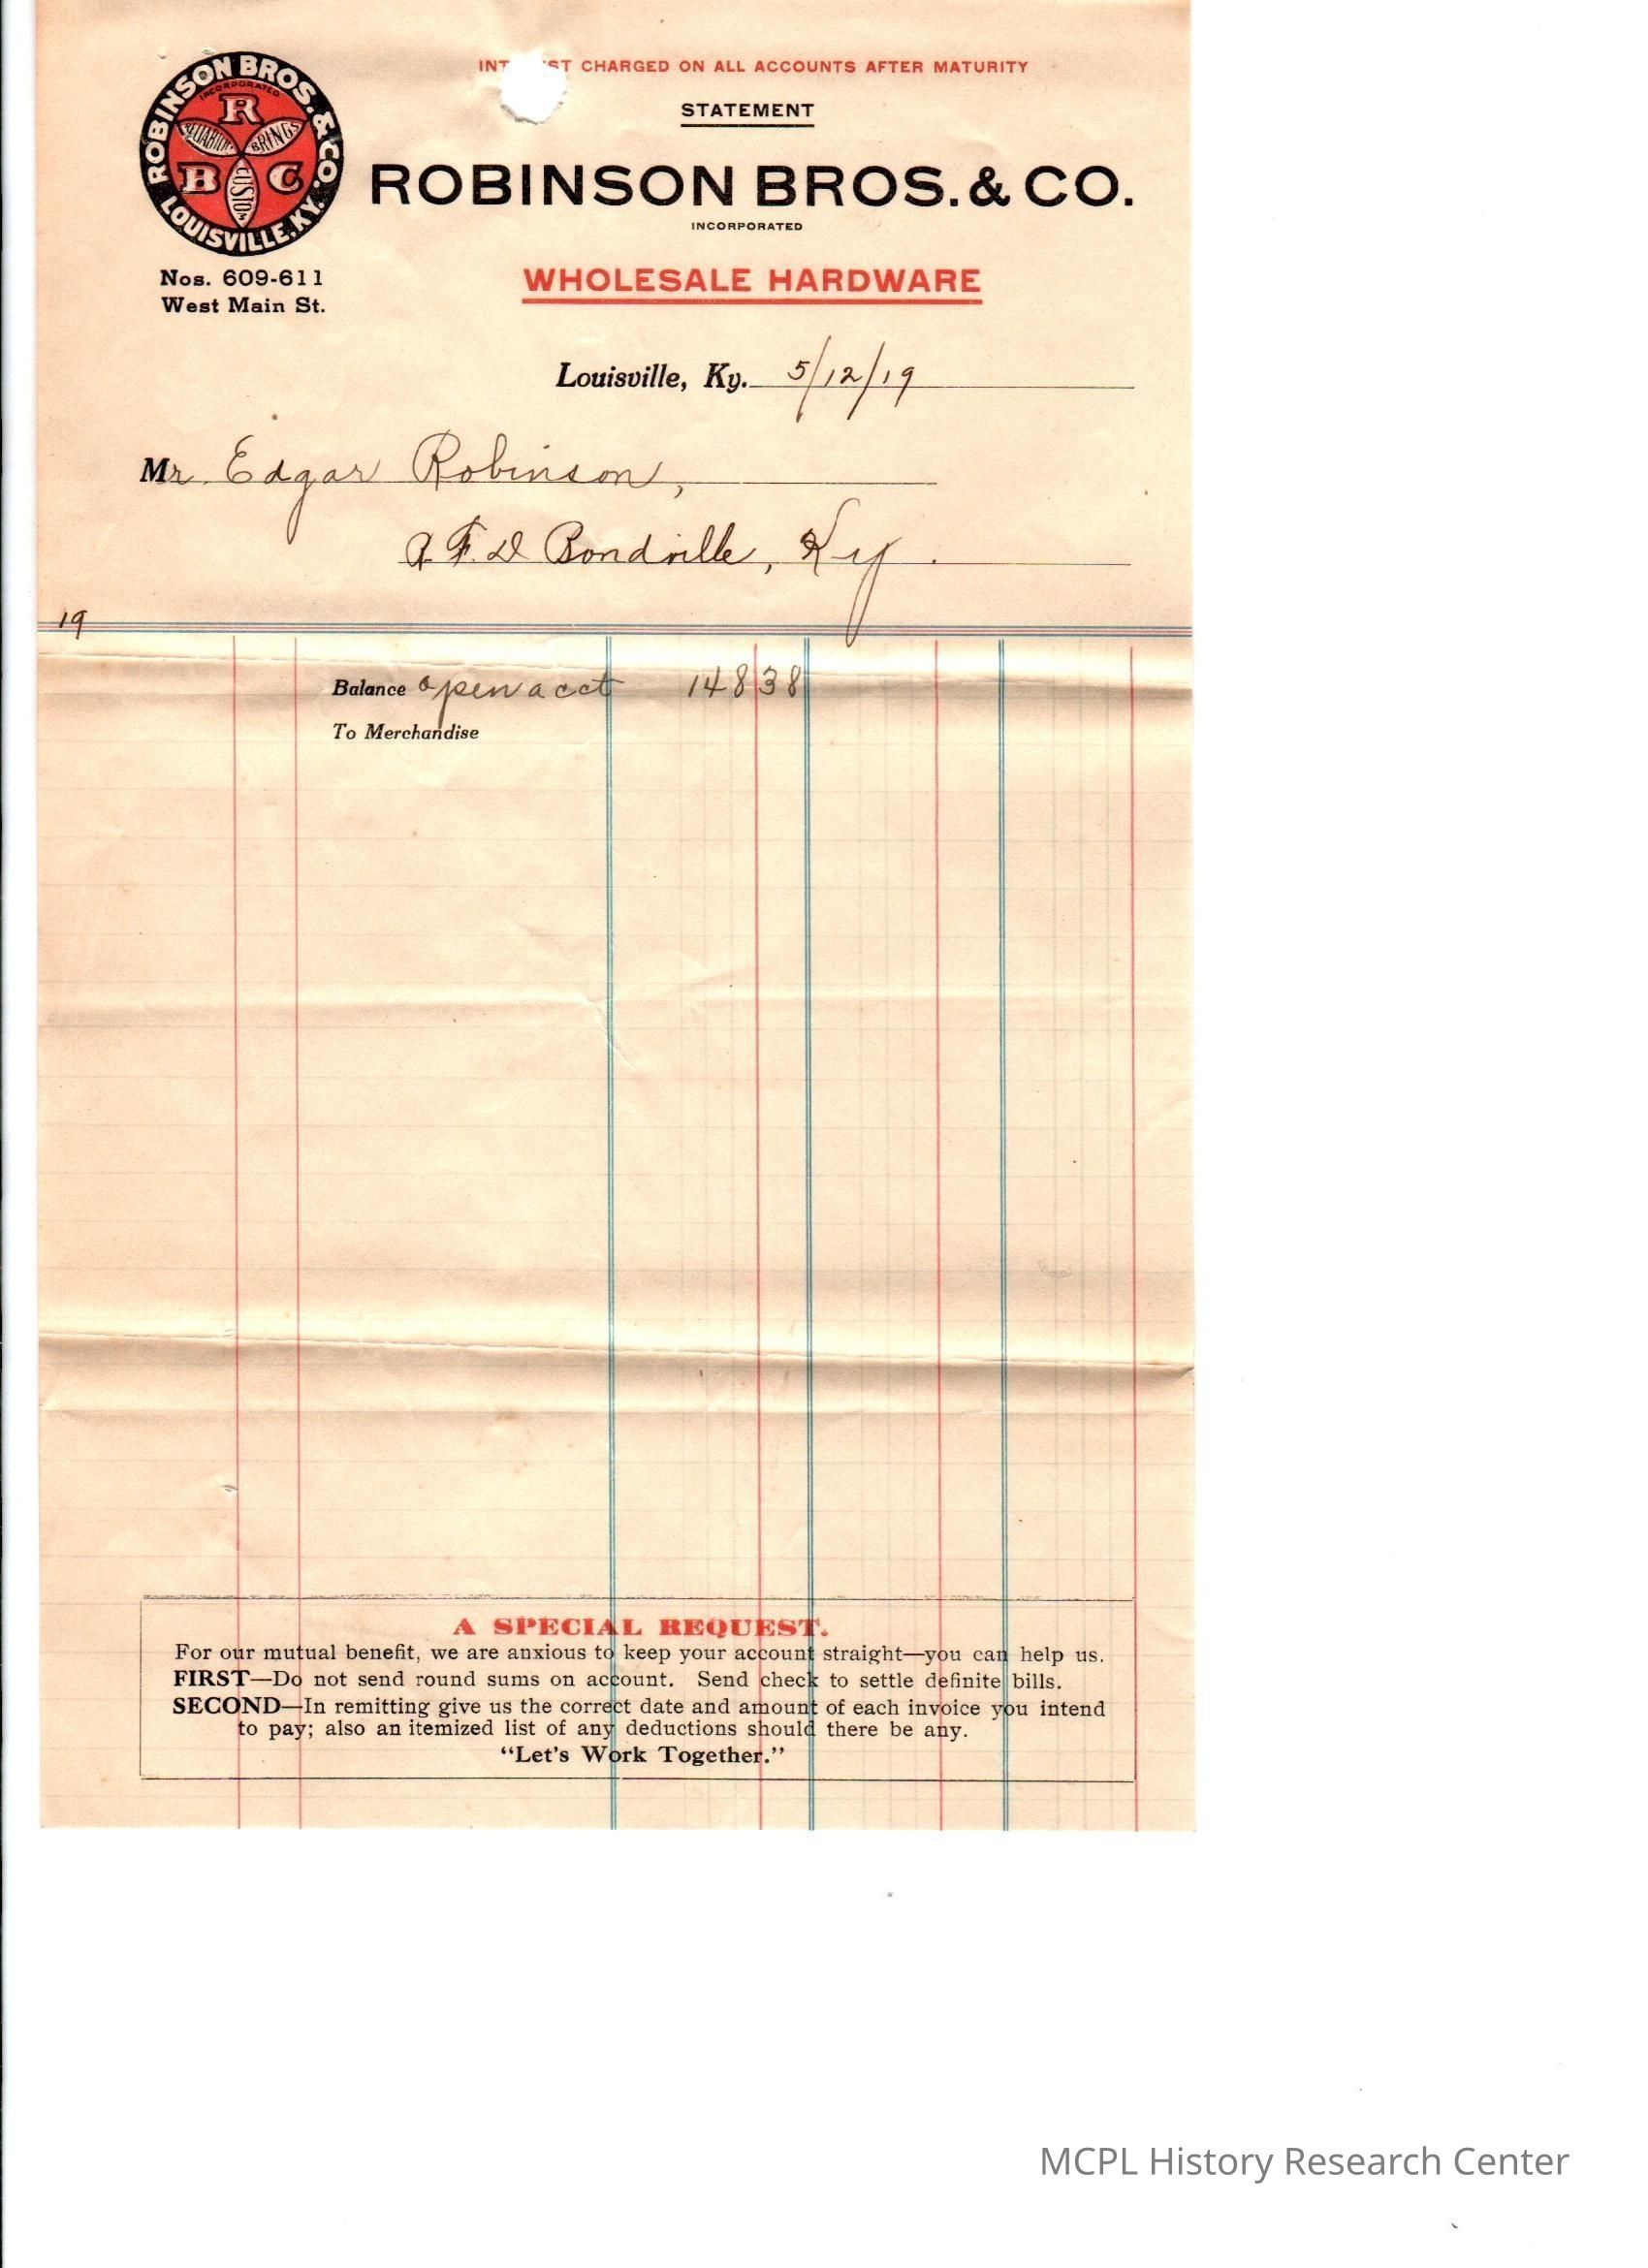 INT ST CHARGED ON ALL ACCOUNTS AFTER MATURITY
STATEMENT
ROBINSON BROS. & CO.
INCORPORATED
LOUISVILLE, KY.
R
RELIABILITY BRINGS
B C
CUSTOM
ROBINSON BROS. & CO.
INCORPORATED
WHOLESALE HARDWARE
Nos. 609-611
West Main St.
Louisville, Ky. 5/12/19
Mr. Edgar Robinson,
R.F.D Bondville, Ky.
19
Balance open acct 148 38
To Merchandise
A SPECIAL REQUEST.
For our mutual benefit, we are anxious to keep your account straight—you can help us.
FIRST—Do not send round sums on account. Send check to settle definite bills.
SECOND—In remitting give us the correct date and amount of each invoice you intend
to pay; also an itemized list of any deductions should there be any.
“Let's Work Together.”
MCPL History Research Center